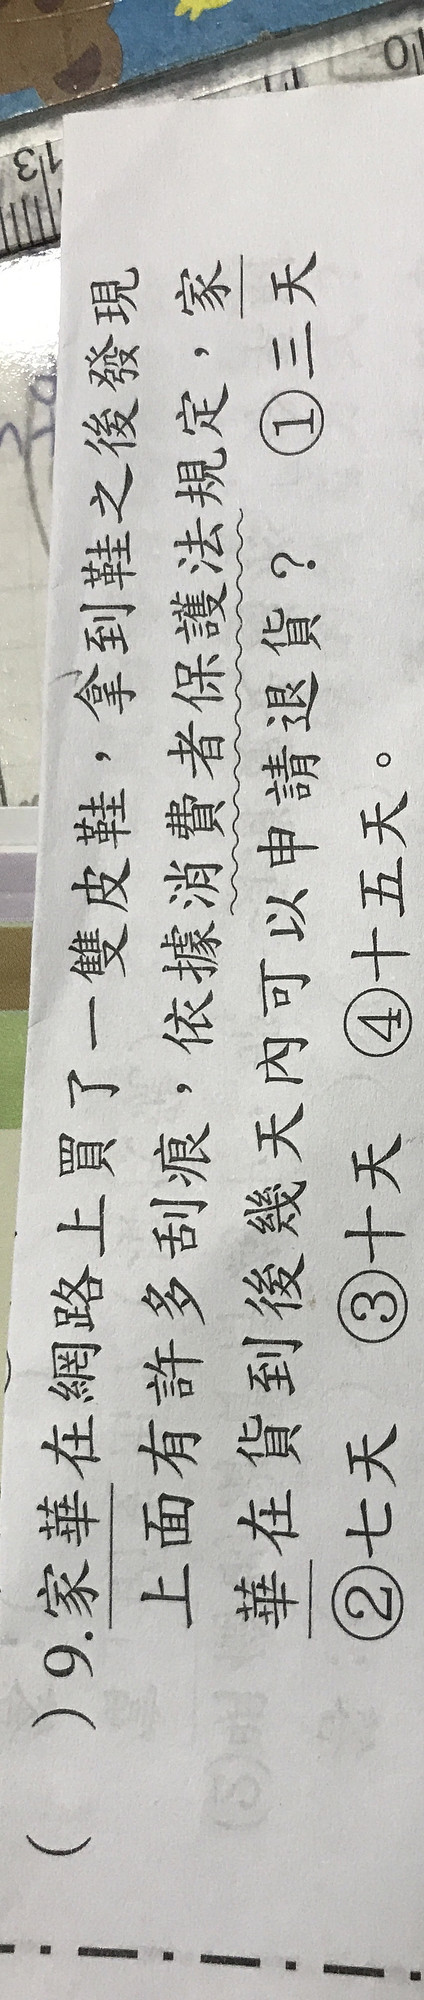 (　　)9.家華在網路上買了一雙皮鞋，拿到鞋之後發現
上面有許多刮痕，依據消費者保護法規定，家
華在貨到後幾天內可以申請退貨？　①三天
②七天　③十天　④十五天。
13